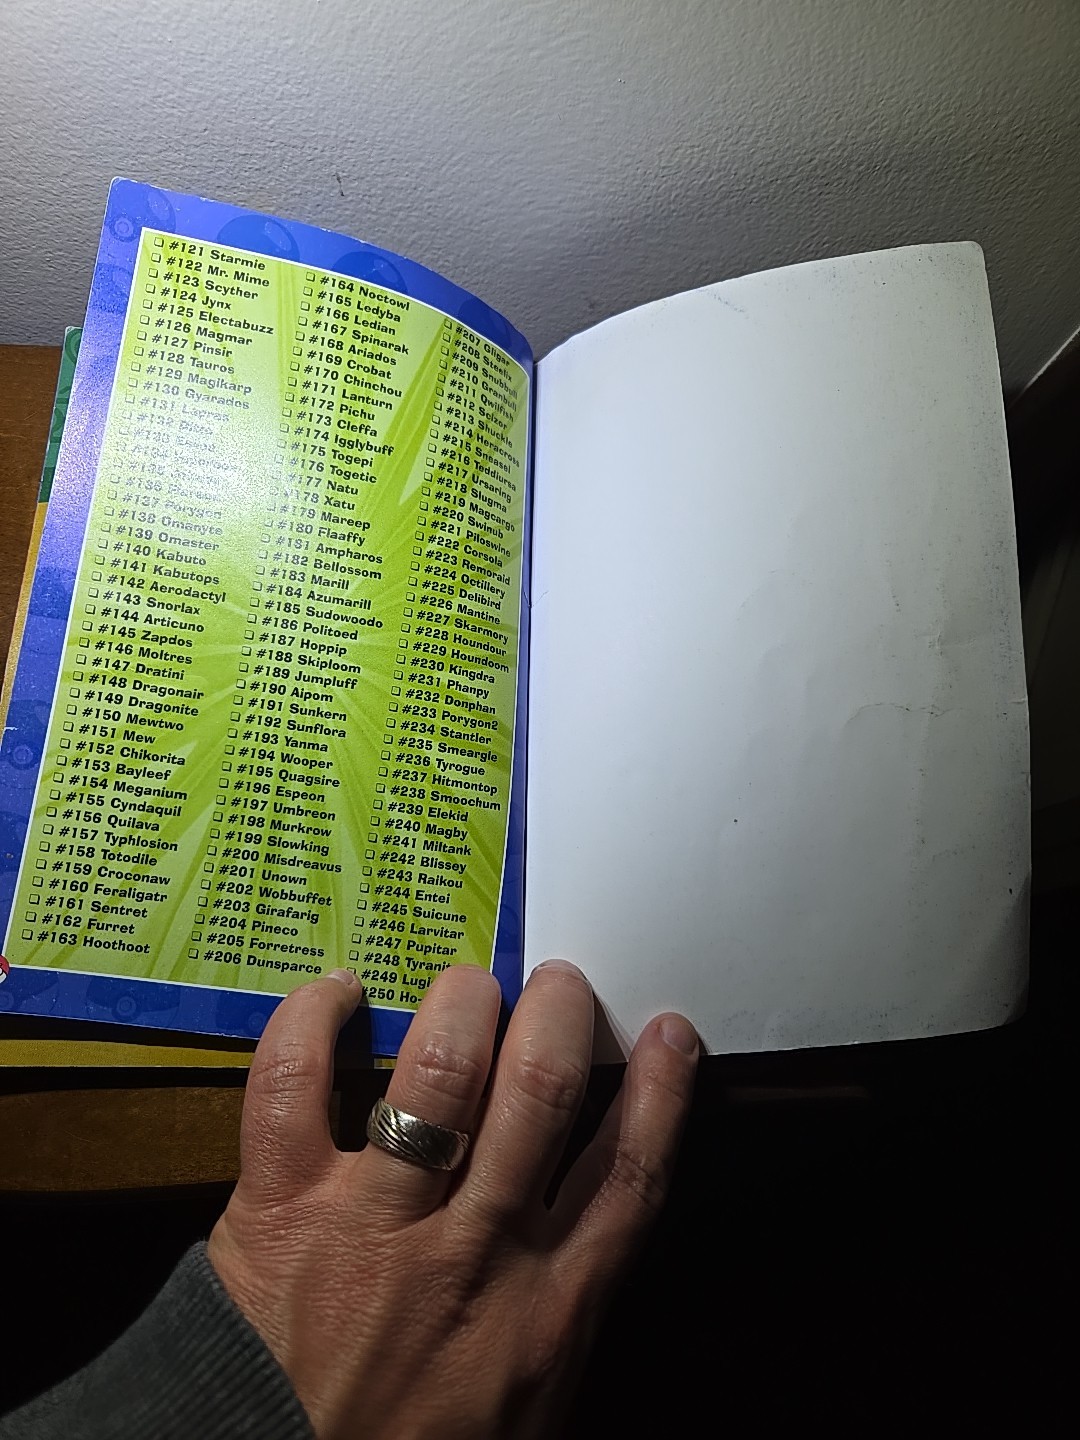 ❏ #121 Starmie
❏ #122 Mr. Mime
❏ #123 Scyther
❏ #124 Jynx
❏ #125 Electabuzz
❏ #126 Magmar
❏ #127 Pinsir
❏ #128 Tauros
❏ #129 Magikarp
❏ #130 Gyarados
❏ #131 Lapras
#137 Porygon
❏ #138 Omanyte
❏ #139 Omaster
❏ #140 Kabuto
❏ #141 Kabutops
❏ #142 Aerodactyl
❏ #143 Snorlax
❏ #144 Articuno
❏ #145 Zapdos
❏ #146 Moltres
❏ #147 Dratini
❏ #148 Dragonair
❏ #149 Dragonite
❏ #150 Mewtwo
❏ #151 Mew
❏ #152 Chikorita
❏ #153 Bayleef
❏ #154 Meganium
❏ #155 Cyndaquil
❏ #156 Quilava
❏ #157 Typhlosion
❏ #158 Totodile
❏ #159 Croconaw
❏ #160 Feraligatr
❏ #161 Sentret
❏ #162 Furret
❏ #163 Hoothoot
❏ #164 Noctowl
❏ #165 Ledyba
❏ #166 Ledian
❏ #167 Spinarak
❏ #168 Ariados
❏ #169 Crobat
❏ #170 Chinchou
❏ #171 Lanturn
❏ #172 Pichu
❏ #173 Cleffa
❏ #174 Igglybuff
❏ #175 Togepi
❏ #176 Togetic
❏ #177 Natu
❏ #178 Xatu
❏ #179 Mareep
❏ #180 Flaaffy
❏ #181 Ampharos
❏ #182 Bellossom
❏ #183 Marill
❏ #184 Azumarill
❏ #185 Sudowoodo
❏ #186 Politoed
❏ #187 Hoppip
❏ #188 Skiploom
❏ #189 Jumpluff
❏ #190 Aipom
❏ #191 Sunkern
❏ #192 Sunflora
❏ #193 Yanma
❏ #194 Wooper
❏ #195 Quagsire
❏ #196 Espeon
❏ #197 Umbreon
❏ #198 Murkrow
❏ #199 Slowking
❏ #200 Misdreavus
❏ #201 Unown
❏ #202 Wobbuffet
❏ #203 Girafarig
❏ #204 Pineco
❏ #205 Forretress
❏ #206 Dunsparce
❏ #207 Gligar
❏ #208 Steelix
❏ #209 Snubbull
❏ #210 Granbull
❏ #211 Qwilfish
❏ #212 Scizor
❏ #213 Shuckle
❏ #214 Heracross
❏ #215 Sneasel
❏ #216 Teddiursa
❏ #217 Ursaring
❏ #218 Slugma
❏ #219 Magcargo
❏ #220 Swinub
❏ #221 Piloswine
❏ #222 Corsola
❏ #223 Remoraid
❏ #224 Octillery
❏ #225 Delibird
❏ #226 Mantine
❏ #227 Skarmory
❏ #228 Houndour
❏ #229 Houndoom
❏ #230 Kingdra
❏ #231 Phanpy
❏ #232 Donphan
❏ #233 Porygon2
❏ #234 Stantler
❏ #235 Smeargle
❏ #236 Tyrogue
❏ #237 Hitmontop
❏ #238 Smoochum
❏ #239 Elekid
❏ #240 Magby
❏ #241 Miltank
❏ #242 Blissey
❏ #243 Raikou
❏ #244 Entei
❏ #245 Suicune
❏ #246 Larvitar
❏ #247 Pupitar
❏ #248 Tyranit
❏ #249 Lugi
#250 Ho-